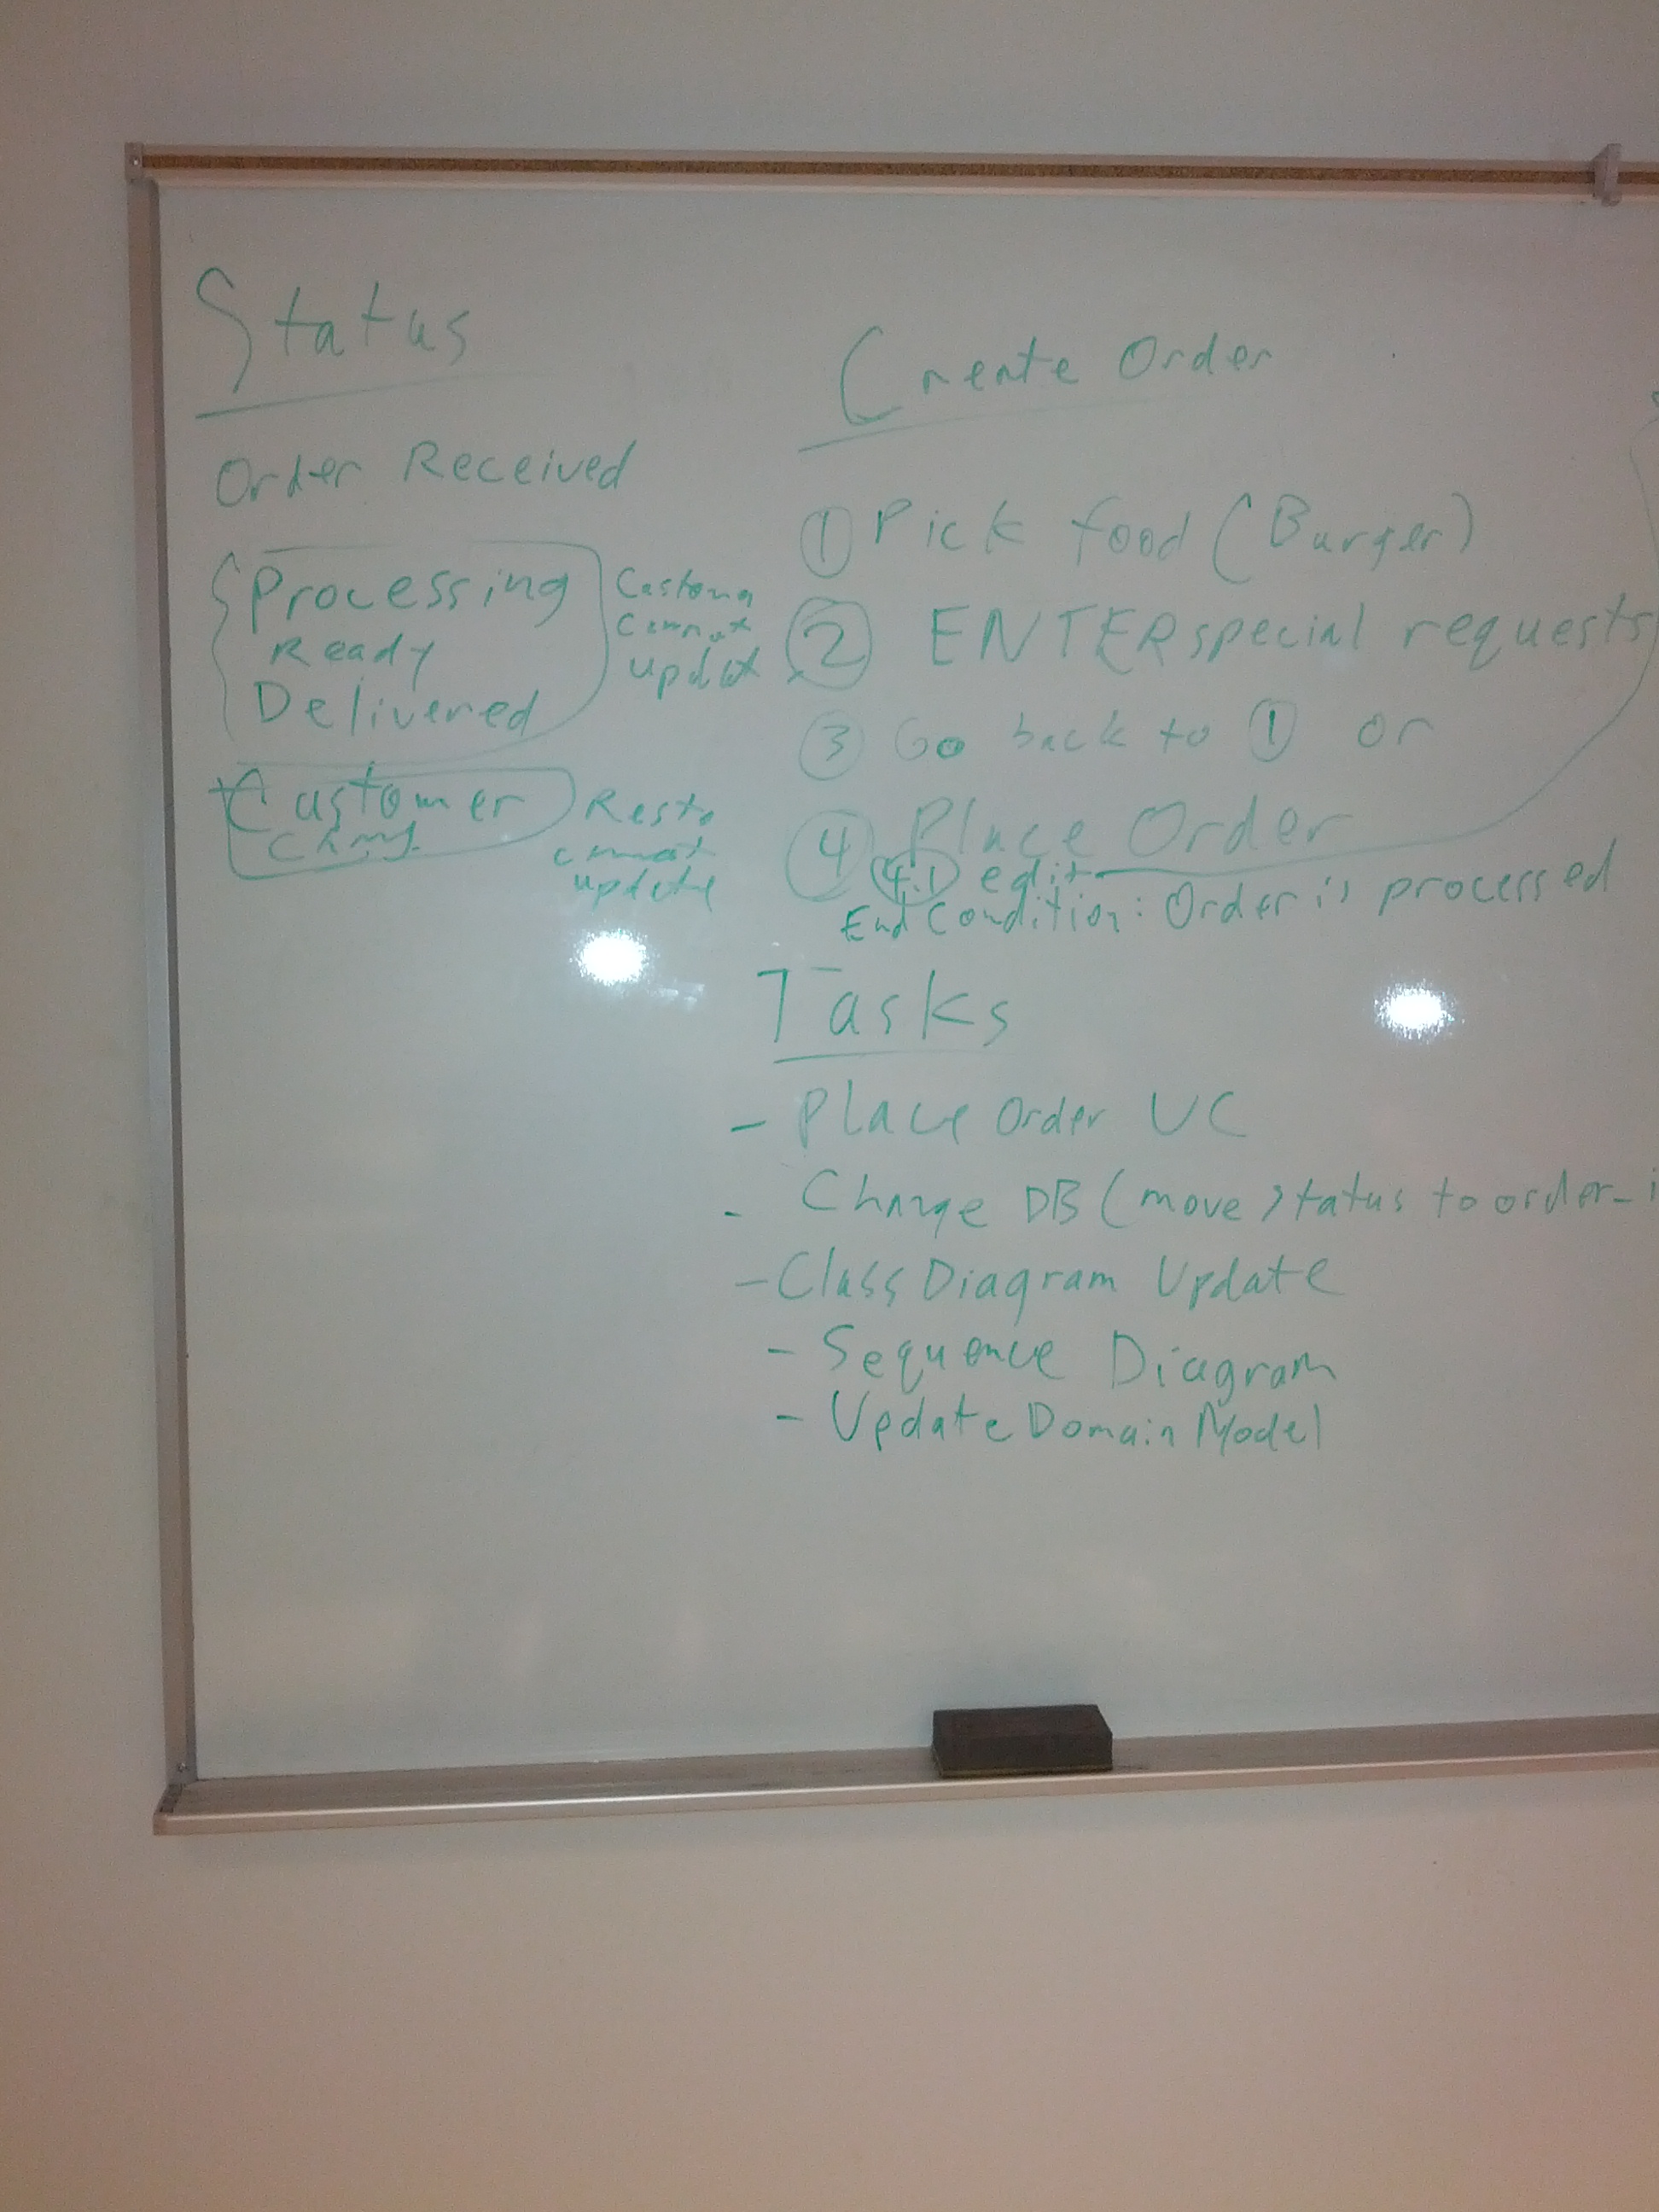 Status
Order Received
Processing
Ready
Delivered
Customer
cannot
update
Customer
Resto
cannot
update
Create Order
① Pick food (Burger)
② ENTER special requests
③ Go back to ① or
④ Place Order
4.1 edit
End Condition: Order is processed
Tasks
- Place Order UC
- Change DB (move status to order_i
- Class Diagram Update
- Sequence Diagram
- Update Domain Model